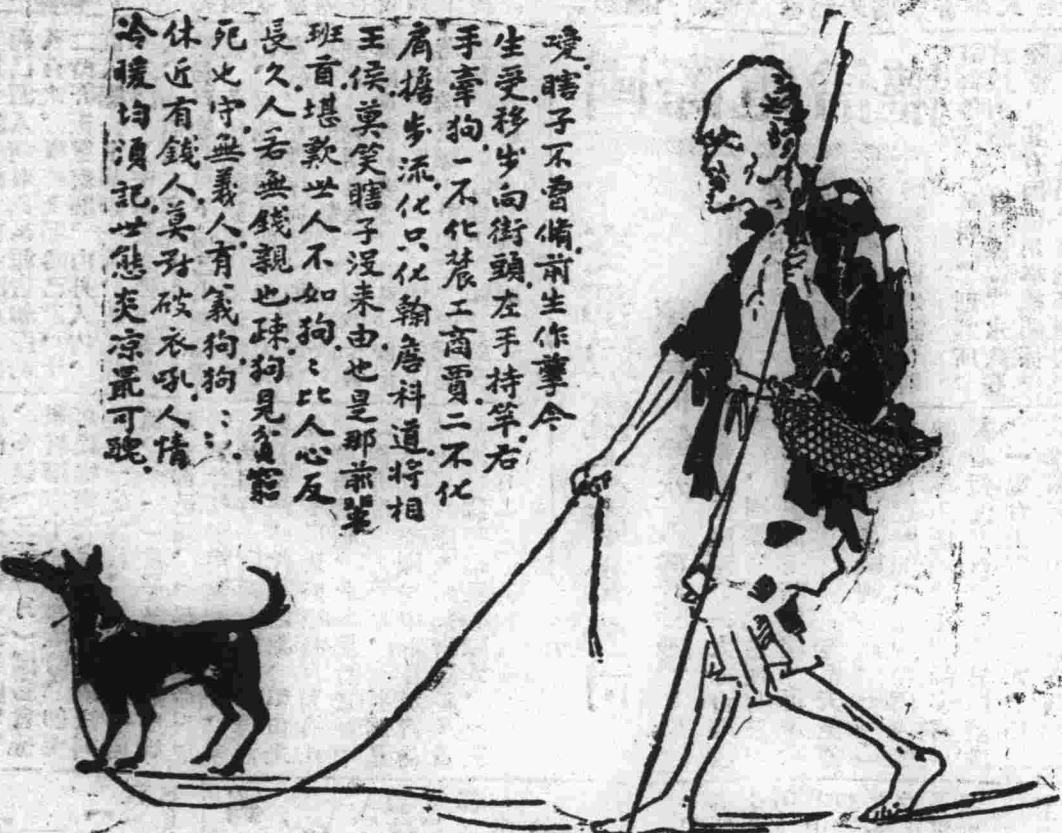 噯．瞎子不曾脩．前生作孽今
生受．移步向街頭．左手持竿．右
手牽狗．一不化農工商賈二不化
肩擔步流．化只化翰詹科道．將相
王侯．莫笑瞎子沒來由也是那前輩
班首．堪歎世人不如狗．〻比人心反
長久人若無錢親也疎．狗見貧窮
死也守．無義人．有義狗．狗〻〻．
休近有錢人．莫對破衣吼．人情
冷暖均須記．世態炎涼最可醜．